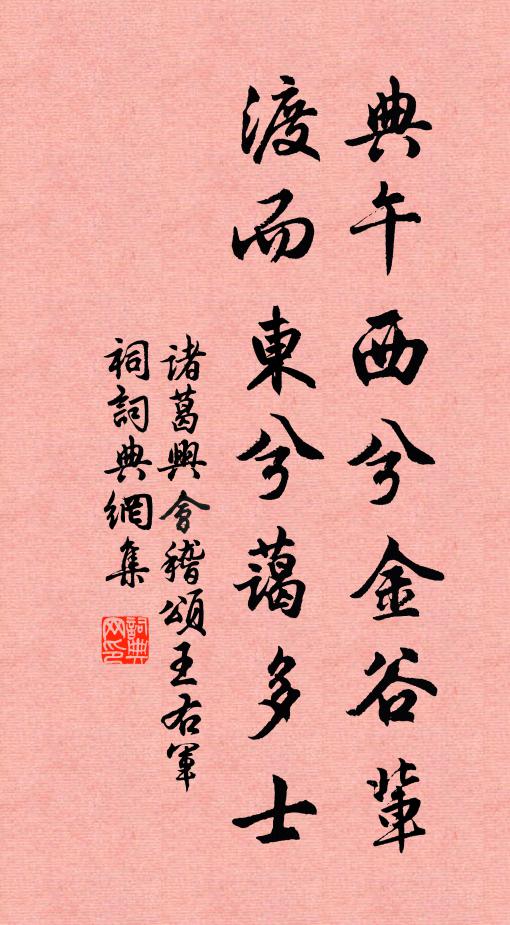 典午西兮金谷輩
渡而東兮藹多士
諸葛興會稽頌王右軍
祠詞典網集
詞典網印